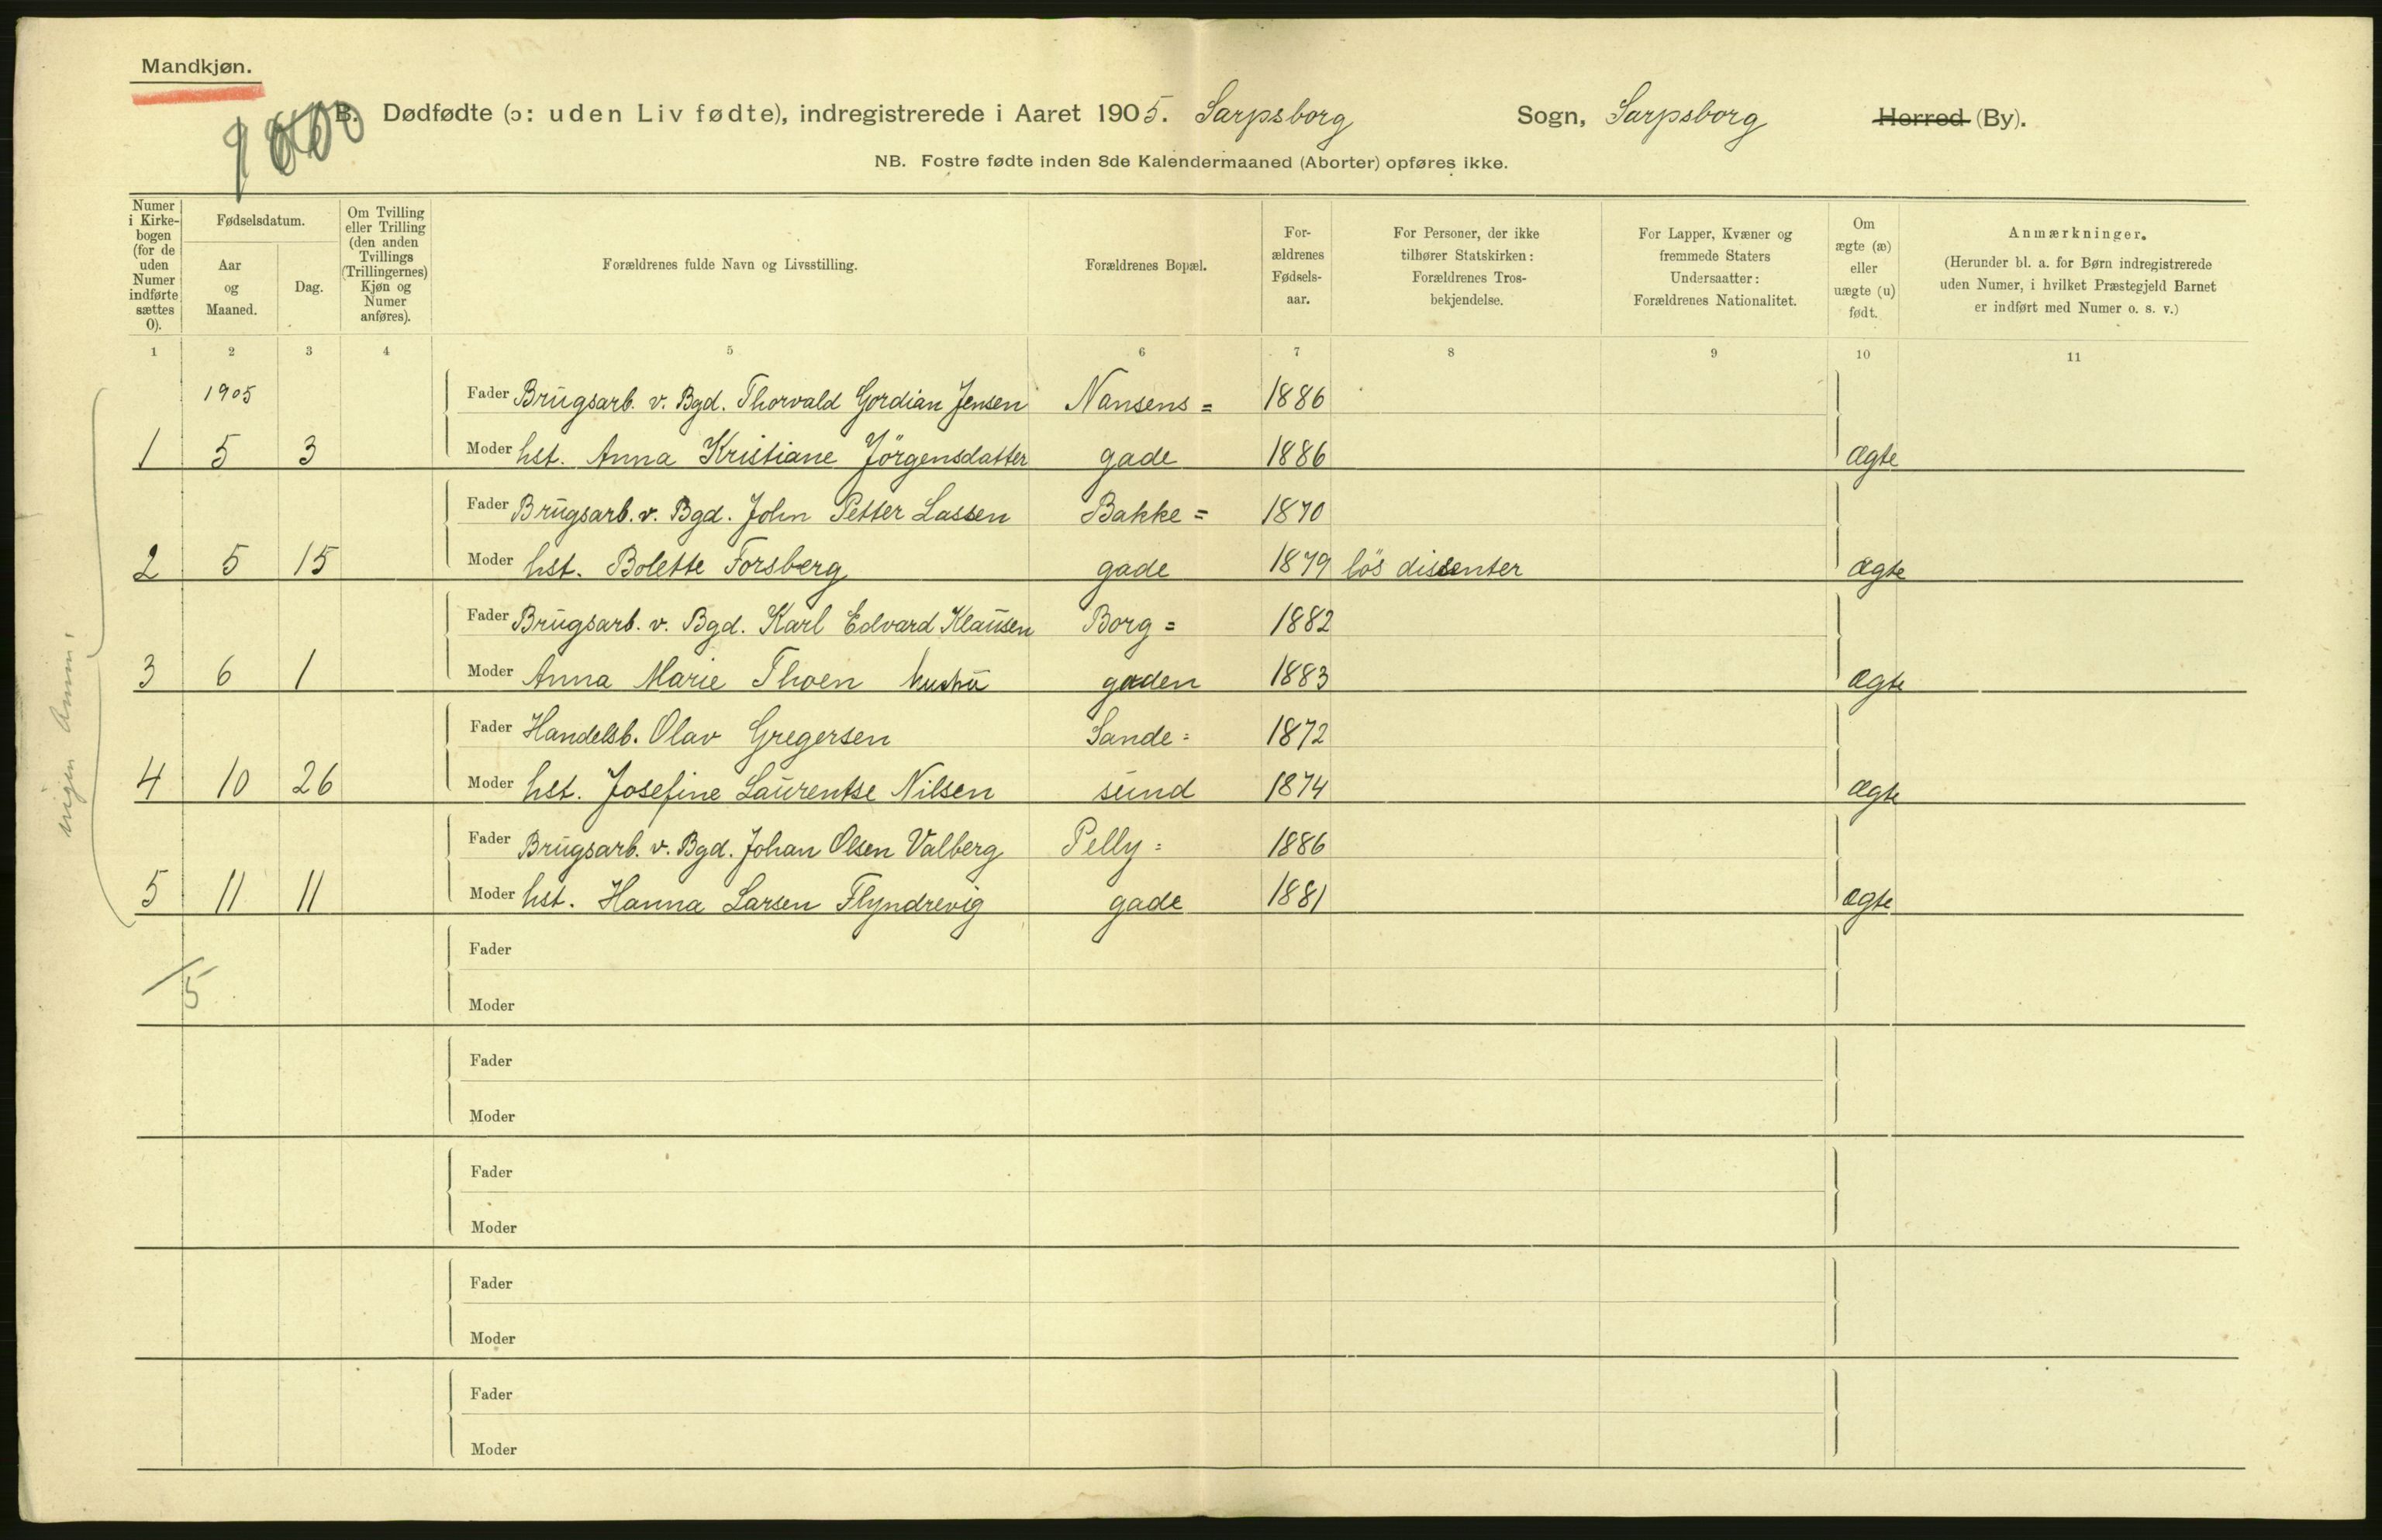 Mandkjøn.
B. Dødfødte (ɔ: uden Liv fødte), indregistrerede i Aaret 1905. Sarpsborg Sogn, Sarpsborg Herred (By).
NB. Fostre fødte inden 8de Kalendermaaned (Aborter) opføres ikke.
Numer i Kirkebogen (for de uden Numer indførte sættes 0).
Fødselsdatum.
Aar og Maaned.
Dag.
Om Tvilling eller Trilling (den anden Tvillings (Trillingernes) Kjøn og Numer anføres).
Forældrenes fulde Navn og Livsstilling.
Forældrenes Bopæl.
For-
ældrenes
Fødsels-
aar.
For Personer, der ikke
tilhører Statskirken:
Forældrenes Tros-
bekjendelse.
For Lapper, Kvæner og
fremmede Staters
Undersaatter:
Forældrenes Nationalitet.
Om
ægte (æ)
eller
uægte (u)
født.
Anmærkninger.
(Herunder bl. a. for Børn indregistrerede
uden Numer, i hvilket Præstegjeld Barnet
er indført med Numer o. s. v.)
1 2 3 4 5 6 7 8 9 10 11
1905 Fader Brugsarb. v. Bgd. Thorvald Gordian Jensen Nansens= 1886
1 5 3 Moder hst. Anna Kristiane Jörgensdatter gade 1886 ægte
Fader Brugsarb. v. Bgd. John Petter Lassen Bakke= 1870
2 5 15 Moder hst. Bolette Forsberg gade 1879 lös dissenter ægte
Fader Brugsarb. v. Bgd. Karl Edvard Klausen Borg= 1882
3 6 1 Moder Anna Marie Thoen hustru gaden 1883 ægte
Fader Handelsb. Olav Gregersen Sande= 1872
4 10 26 Moder hst. Josefine Laurentse Nilsen sund 1874 ægte
Fader Brugsarb. v. Bgd. Johan Olsen Valberg Pelly= 1886
5 11 11 Moder hst. Hanna Larsen Flyndrevig gade 1881 ægte
Fader
5
Moder
Fader
Moder
Fader
Moder
Fader
Moder
Fader
Moder
ingen Anm.